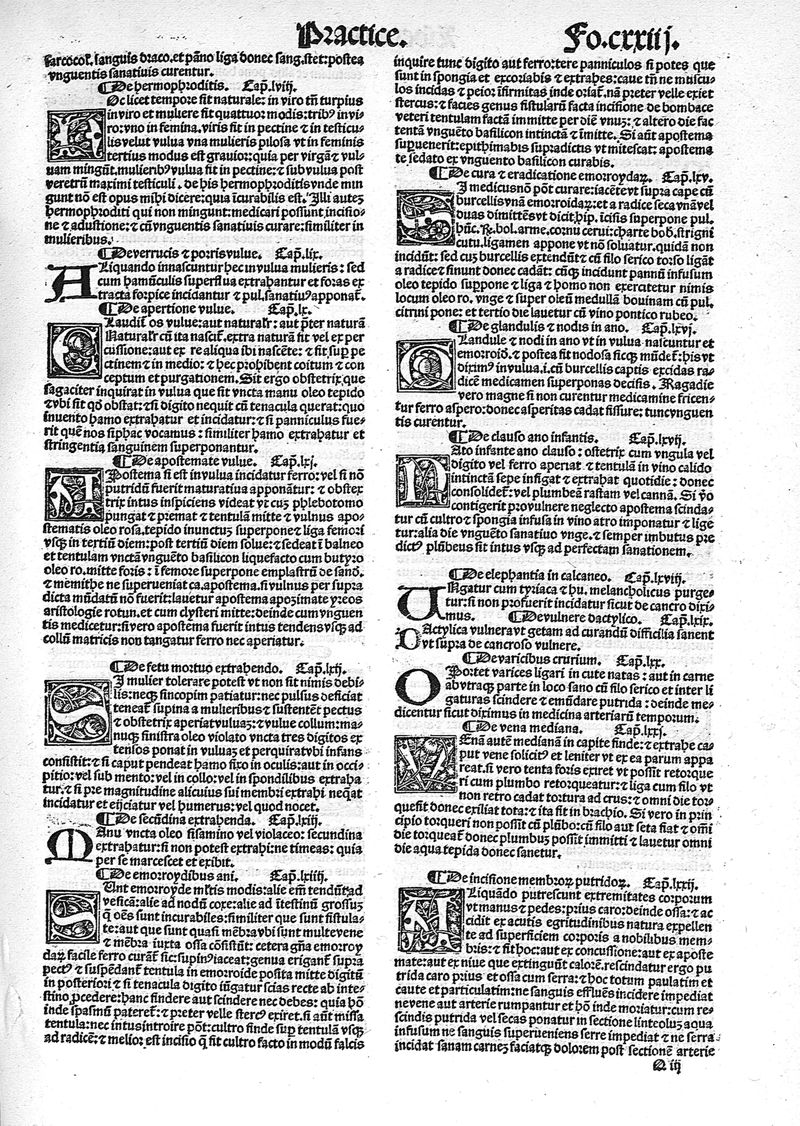 Practice. Fo.cxxiij.
sarcocol. sanguis draco. et pāno liga donec sang. stet: postea
vnguentis sanatiuis curentur.
¶De hermophroditis. Cap̄.lviij.
Oc licet tempore sit naturale: in viro tn̄ turpius
in viro et muliere fit quattuor modis: tribꝰ in vi
ro: vno in femina. viris fit in pectine ⁊ in testicu
lis velut vulua vna mulieris pilosa vt in feminis
tertius modus est grauior: quia per virgā ⁊ vul
uam mingūt. mulieribꝰ vulua fit in pectine: ⁊ sub vulua post
veretrū maximi testiculi. de his hermophroditis vnde min
gunt nō est opus mihi dicere: quia īcurabilis est. Illi autē
hermophroditi qui non mingunt: medicari possunt incisio-
ne ⁊ adustione: ⁊ cū vnguentis sanatiuis curare: similiter in
mulieribus.
¶De verrucis ⁊ porris vulue. Cap̄.lix.
ALiquando innascuntur hec in vulua mulieris: sed
cum hamulis superflua extrahantur et foras ex
tracta forpice incidantur ⁊ pul. sanatiuꝰ apponat̄.
¶De apertione vulue. Cap̄.lx.
CLaudit̄ os vulue: aut naturalr̄: aut p̄ter naturā
Naturalr̄ cū ita nascit̄. extra naturā fit vel ex per
cussione: aut ex re aliqua ibi nascēte: ⁊ fit sup̄ pe
ctinem ⁊ in medio: ⁊ hec prohibent coitum ⁊ con
ceptum et purgationem. Sit ergo obstetrix que
sagaciter inquirat in vulua que sit vncta manu oleo tepido
⁊ vbi sit qd̄ obstat: ⁊ si digito nequit cū tenacula querat: quo
inuento hamo extrahatur et incidatur: ⁊ si panniculus fue-
rit quē nos siphac vocamus: similiter hamo extrahatur et
stringentia sanguinem superponantur.
¶De apostemate vulue. Cap̄.lxj.
Apostema si est in vulua incidatur ferro: vel si nō
putridū fuerit maturatiua apponātur: ⁊ obstetrix
intus inspiciens videat vt cuꝫ phlebotomo
pungat ⁊ premat ⁊ tentulā mitte ⁊ vulnus apo-
stematis oleo rosa. tepido inunctuꝫ superpone ⁊ liga femori
vsqꝫ in tertiū diem: post tertiū diem solue: ⁊ sedeat ī balneo
et tentulam vnctā vnguēto basilicon liquefacto cum butyro
oleo ro. mitte foris: ī femore superpone emplastrū de sand.
⁊ memithe ne superueniat ca. apostema. si vulnus per supra
dicta mūdatū nō fuerit: lauetur apostema apozimate yreos
aristologie rotun. et cum clysteri mitte: deinde cum vnguen
tis medicetur: si vero apostema fuerit intus tendens vsqꝫ ad
collū matricis non tangatur ferro nec aperiatur.
¶De fetu mortuo extrahendo. Cap̄.lxij.
SI mulier tolerare potest vt non sit nimis debi-
lis: neqꝫ sincopim patiatur: nec pulsus deficiat
teneat̄ supina a mulieribus ⁊ sustentēt pectus
⁊ obstetrix aperiat vuluaꝫ: ⁊ vulue collum: ma-
nuqꝫ sinistra oleo violato vncta tres digitos ex
tensos ponat in vuluaꝫ et perquirat vbi infans
consistit: ⁊ si caput pendeat hamo fixo in oculis: aut in occi-
pitio: vel sub mento: vel in collo: vel in spondilibus extraha
tur. ⁊ si pre magnitudine alicuius sui membri extrahi neqat
incidatur et eijciatur vel humerus: vel quod nocet.
¶De secūdina extrahenda. Cap̄.lxiij.
MAnu vncta oleo sisamino vel violaceo: secundina
extrahatur: si non potest extrahi: ne timeas: quia
per se marcescet et exibit.
¶De emorroydibus ani. Cap̄.lxiiij.
SUnt emorroyde mltis modis: alie em̄ tendūt ad
vesicā: alie ad nodū coxe: alie ad ītestinū grossuꝫ
q̄ oēs sunt incurabiles: similiter que sunt fistula-
te: aut que sunt quasi mēbra vbi sunt multe vene
⁊ mēbra iuxta ossa cōsistūt: cetera gn̄a emorroy
daꝝ facile ferro curant̄ sic: supinꝰ iaceat: genua erigant̄ supra
pectꝰ ⁊ suspēdant̄ tentula in emorroide posita mitte digitū
in posteriori ⁊ si tenacula digito iūgatur scias recte ab inte-
stino p̄cedere: hanc findere aut scindere nec debes: quia hō
inde spasmū pateret̄: ⁊ preter velle stercꝰ exiret. si aūt missa
tentula: nec intus introire pōt: cultro finde sup̄ tentulā vsqꝫ
ad radicē: ⁊ melior est incisio q̄ fit cultro facto in modū falcis
inquire tunc digito aut ferro: tere panniculos si potes que
sunt in spongia et excoriabis ⁊ extrahes: caue tn̄ ne muscu-
los incidas ⁊ peior īfirmitas inde oriat̄. nā preter velle exiet
stercus: ⁊ facies genus fistularū facta incisione de bombace
veteri tentulam factā immitte per diē vnuꝫ: ⁊ altero die fac
tentā vnguēto basilicon intinctā ⁊ īmitte. Si aūt apostema
supuenerit: epithimabis supradictis vt mitescat: apostema
te sedato ex vnguento basilicon curabis.
¶De cura ⁊ eradicatione emorroydaꝝ. Cap̄.lxv.
SI medicus nō pōt curare: iacēte vt supra cape cū
burcellis vnā emorroidaꝝ: et a radice seca vnā vel
duas dimittēs vt dicit hip. īcisis superpone pul.
hūc. ℞. bol. arme. cornu cerui: charte bob. strigni
cutu. ligamen appone vt nō soluatur. quidā non
incidūt: sed cuꝫ burcellis extendūt ⁊ cū filo serico torso ligāt
a radice ⁊ sinunt donec cadāt: cūqꝫ incidunt pannū infusum
oleo tepido suppone ⁊ liga ⁊ homo non exercetur nimis
locum oleo ro. vnge ⁊ super oleū medullā bouinam cū pul.
citrini pone: et tertio die lauetur cū vino pontico rubeo.
¶De glandulis ⁊ nodis in ano. Cap̄.lxvj.
GLandule ⁊ nodi in ano vt in vulua nascuntur et
emoroid. ⁊ postea fit nodosa sicqꝫ mūdet̄: his vt
diximꝰ in vulua. i. cū burcellis captis excidas ra-
dicē medicamen superponas decisis. Ragadie
vero magne si non curentur medicamine fricen-
tur ferro aspero: donec asperitas cadat fissure: tunc vnguen
tis curentur.
¶De clauso ano infantis. Cap̄.lxvij.
NAto infante ano clauso: ostetrix cum vngula vel
digito vel ferro aperiat ⁊ tentulā in vino calido
intinctā sepe infigat ⁊ extrahat quotidie: donec
consolidet̄: vel plumbeā rastam vel cannā. Si v̄o
contigerit pro vulnere neglecto apostema scinda-
tur cū cultro ⁊ spongia infusa in vino atro imponatur ⁊ lige
tur: alia die vnguēto sanatiuo vnge. ⁊ semper imbutus pre
dictꝰ plūbeus sit intus vsqꝫ ad perfectam sanationem.
¶De elephantia in calcaneo. Cap̄.lxviij.
UNgatur cum tyriaca ⁊ hu. melancholicus purge-
tur: si non profuerit incidatur sicut de cancro dixi-
mus. ¶De vulnere dactylico. Cap̄.lxix.
DActylica vulnera vt getam ad curandū difficilia sanent
vt supra de cancroso vulnere.
¶De varicibus crurium. Cap̄.lxx.
OPortet varices ligari in cute natas: aut in carne
ab vtraqꝫ parte in loco sano cū filo serico et inter li
gaturas scindere ⁊ emūdare putrida: deinde me-
dicentur sicut diximus in medicina arteriarū temporum.
¶De vena mediana. Cap̄.lxxj.
VEnā autē medianā in capite finde: ⁊ extrahe ca-
put vene solicitꝰ et leniter vt ex ea parum appa
reat. si vero tenta foris exiret vt possit retorque
ri cum plumbo retorqueatur: ⁊ liga cum filo vt
non retro cadat tortura ad crus: ⁊ omni die tor-
queatur donec exiliat tota: ⁊ ita fit in brachio. Si vero in prin
cipio torqueri non possit cū plūbo: cū filo aut seta fiat ⁊ omī
die torqueat̄ donec plumbuꝫ possit immitti ⁊ lauetur omni
die aqua tepida donec sanetur.
¶De incisione membroꝝ putridoꝝ. Cap̄.lxxij.
ALiquādo putrescunt extremitates corporum
vt manus ⁊ pedes: prius caro: deinde ossa: ⁊ ac
cidit ex acutis egritudinibus natura expellen
te ad superficiem corporis a nobilibus mem-
bris: ⁊ fit hoc: aut ex concussione: aut ex aposte
mate: aut ex niue que extinguit calorē. rescindatur ergo pu
trida caro prius et ossa cum serra: ⁊ hoc totum paulatim et
caute et particulatim: ne sanguis effluēs incidere impediat
ne vene aut arterie rumpantur et hō inde moriatur: cum re-
scindis putrida vel secas ponatur in sectione linteoluꝫ aqua
infusum ne sanguis superueniens serre impediat ⁊ ne serra
incidat sanam carneꝫ faciatqꝫ dolorem post sectionē arterie
Q iij